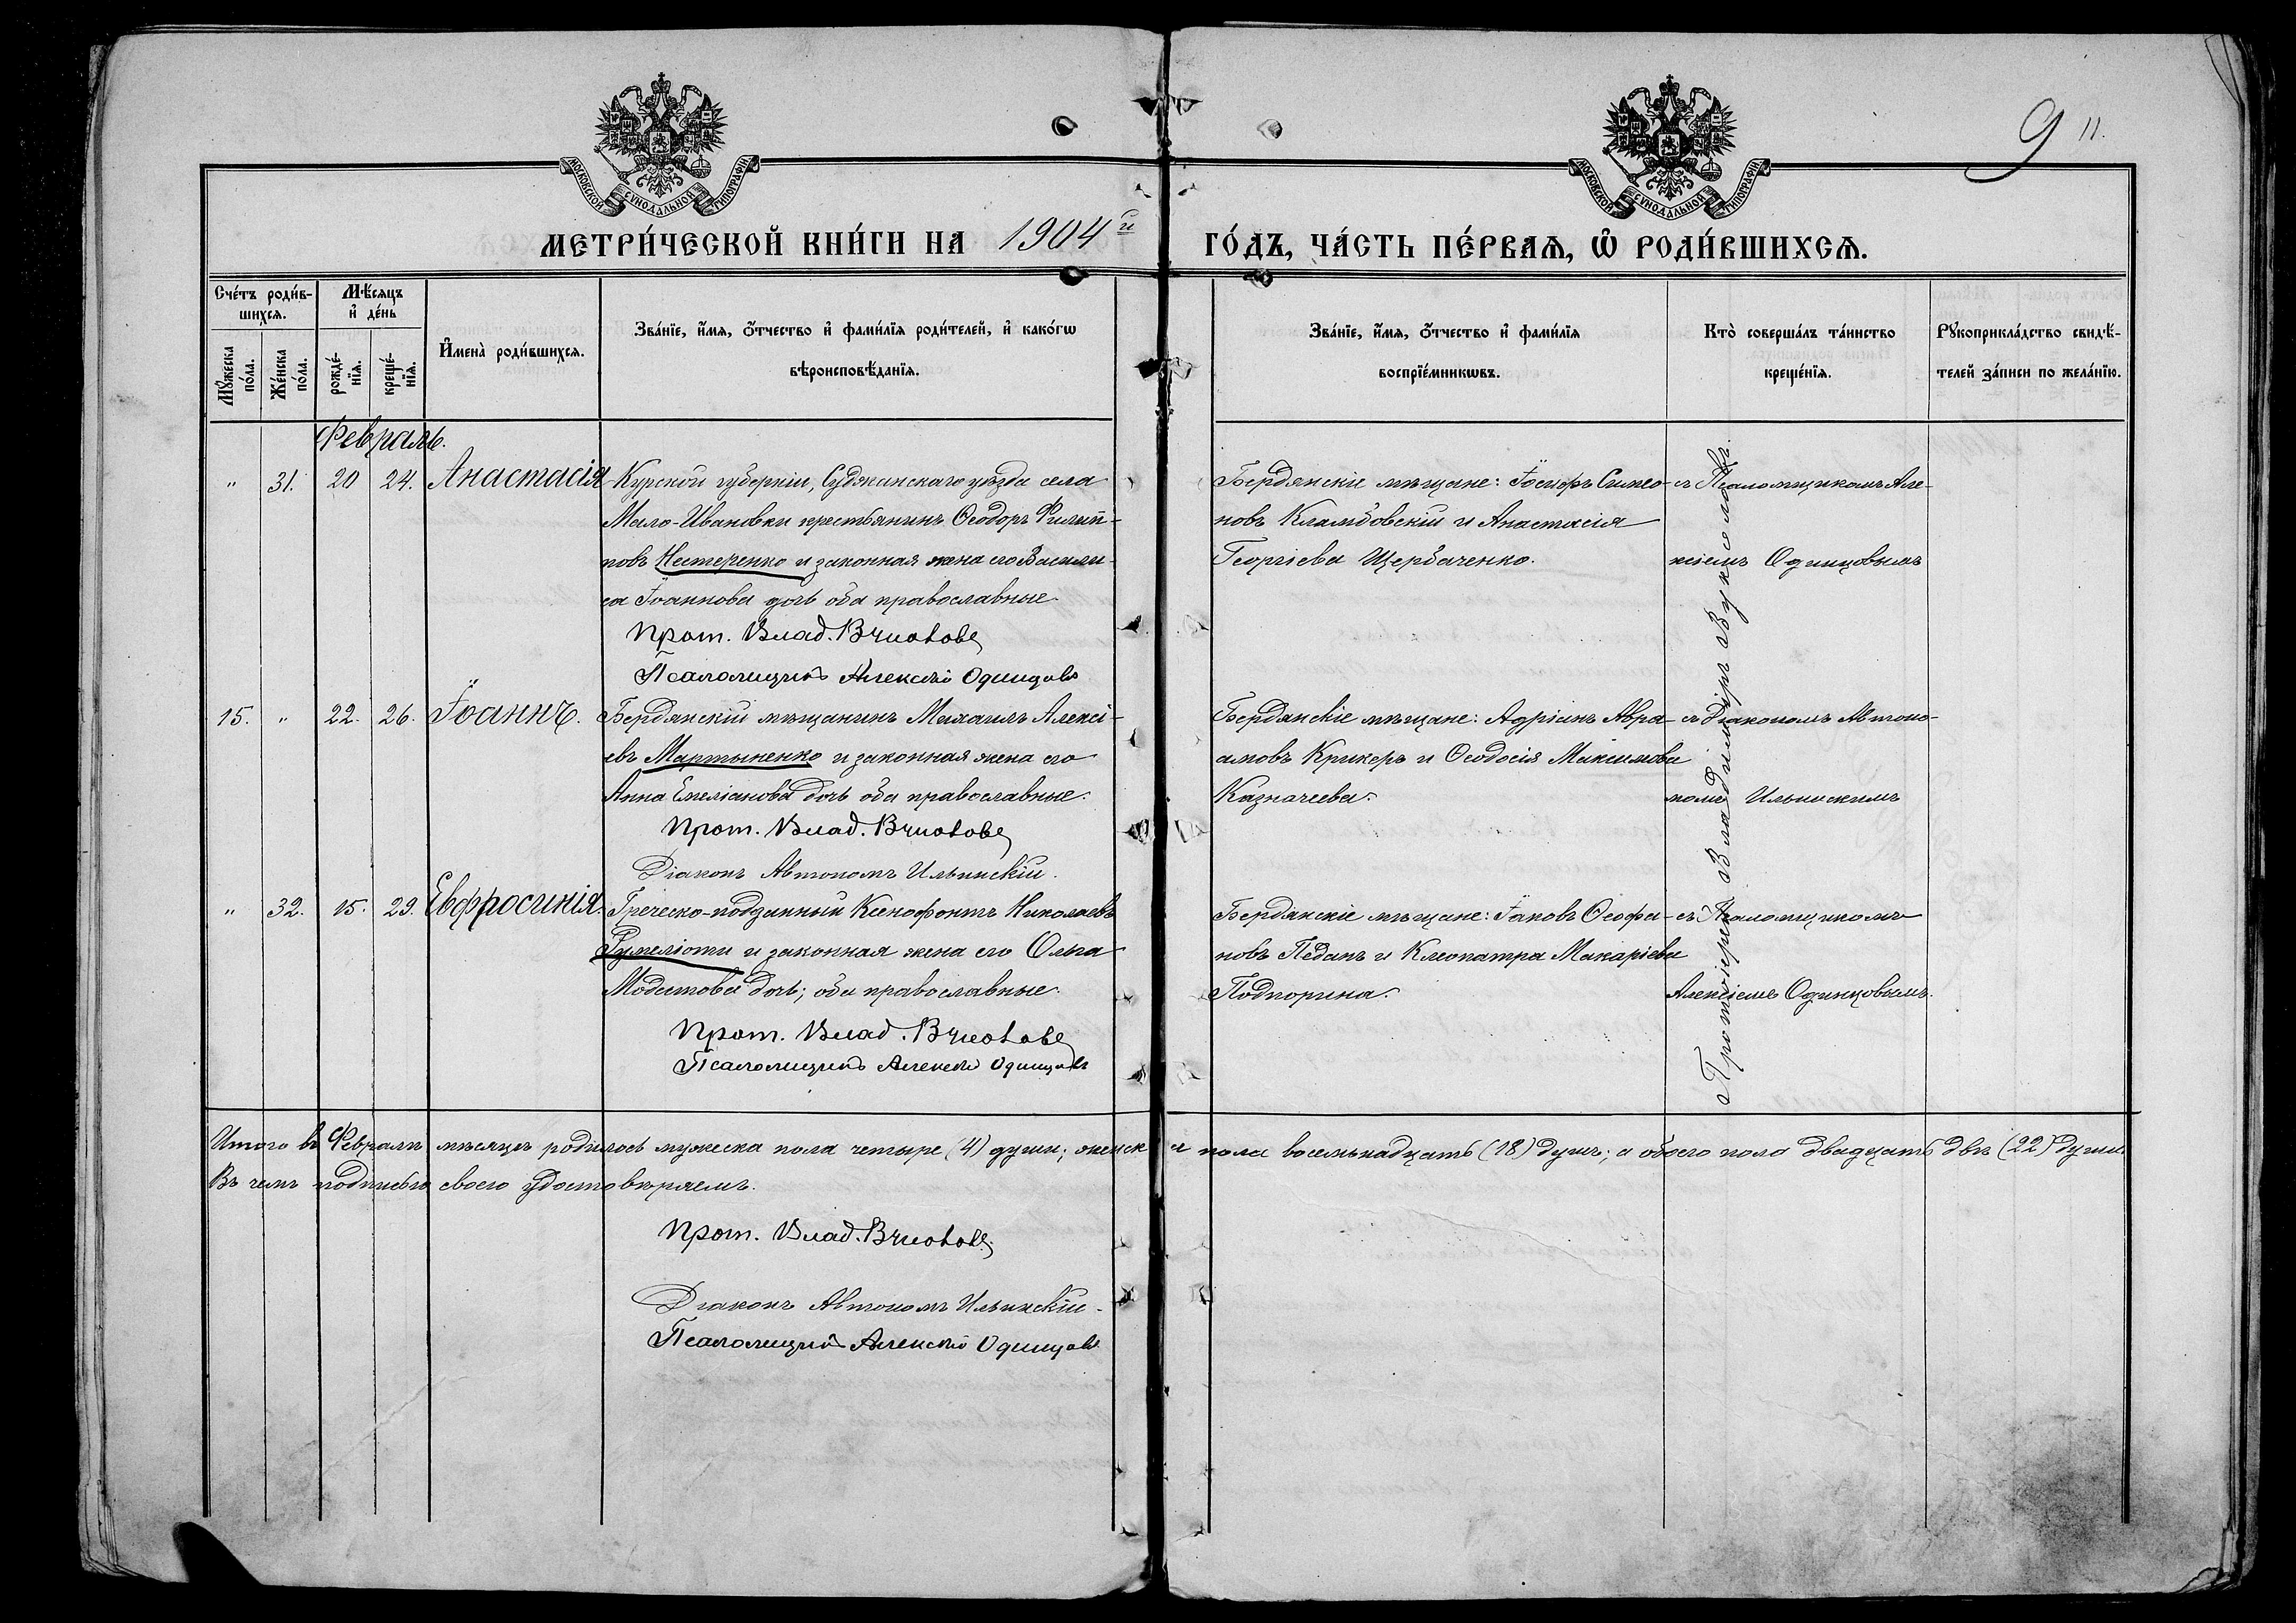 9 11.
МОСКОВСКОЙ СѴНОДАЛЬНОЙ ТИПОГРАФІИ
МОСКОВСКОЙ СѴНОДАЛЬНОЙ ТИПОГРАФІИ
МЕТРИ́ЧЕСКОЙ КНИ́ГИ НА 1904й
ГО́ДЪ, ЧА́СТЬ ПЕ́РВАѦ, Ѽ РОДИ́ВШИХСѦ.
Сче́тъ роди́в-
шихсѧ.
Мѣ́сѧцъ
и҆ де́нь
Мꙋ́жеска
по́ла.
Же́нска
по́ла.
рожде́-
нїѧ.
креще́-
нїѧ.
И҆мена̀ роди́вшихсѧ.
Зва́нїе, и҆́мѧ, ѻ҆́тчество и҆ фами́лїѧ роди́телей, и҆ како́гѡ
вѣроисповѣ́данїѧ.
Зва́нїе, и҆́мѧ, ѻ҆́тчество и҆ фами́лїѧ
воспрїе́мникѡвъ.
Кто̀ соверша́лъ та́инство
креще́нїѧ.
Рꙋкоприкла́дство свидѣ́-
телей за́писи по жела́нїю.
Февраль.
" 31. 20 24. Анастасія Курской губерніи, Суджанскаго уѣзда села
Мало-Ивановки крестьянинъ Ѳеодоръ Филип-
повъ Нестеренко и законная жена его Васили-
са Іоаннова дочь оба православные.
Прот. Влад.
Псаломщикъ Алексѣй Одинцовъ
Бердянскіе мѣщане: Іосифъ Симео-
новъ Климбовскій и Анастасія
Георгіева Щербаченко.
съ Псаломщикомъ Але-
ксіемъ Одинцовымъ
15. " 22. 26. Іоаннъ. Бердянскій мѣщанинъ Михаилъ Алексі-
евъ Мартыненко и законная жена его
Анна Емеліанова дочь оба православные.
Прот. Влад.
Діаконъ Автономъ Ильинскій.
Бердянскіе мѣщане: Адріанъ Авра-
амовъ Крикеръ и Ѳеодосія Максимова
Казначеева.
съ Діакономъ Автоно-
момъ Ильинскимъ
" 32. 15. 29. Евфросинія. Греческо-подданный Ксенофонтъ Николаевъ
Румеліоти и законная жена его Ольга
Модестова дочь; оба православные.
Прот. Влад.
Псаломщикъ Алексѣй Одинцовъ
Бердянскіе мѣщане: Іаковъ Ѳеофа-
новъ Педанъ и Клеопатра Макаріева
Подпорина.
съ Псаломщикомъ
Алексіемъ Одинцовымъ.
Протоіерей Владиміръ
Итого въ Февралѣ мѣсяцѣ родилось мужеска пола четыре (4) души; женска пола восемьнадцать (18) душъ; а обоего пола двадцать двѣ (22) души
Въ чемъ подписью своею удостовѣряемъ.
Прот. Влад.
Діаконъ Автономъ Ильинскій.
Псаломщикъ Алексѣй Одинцовъ